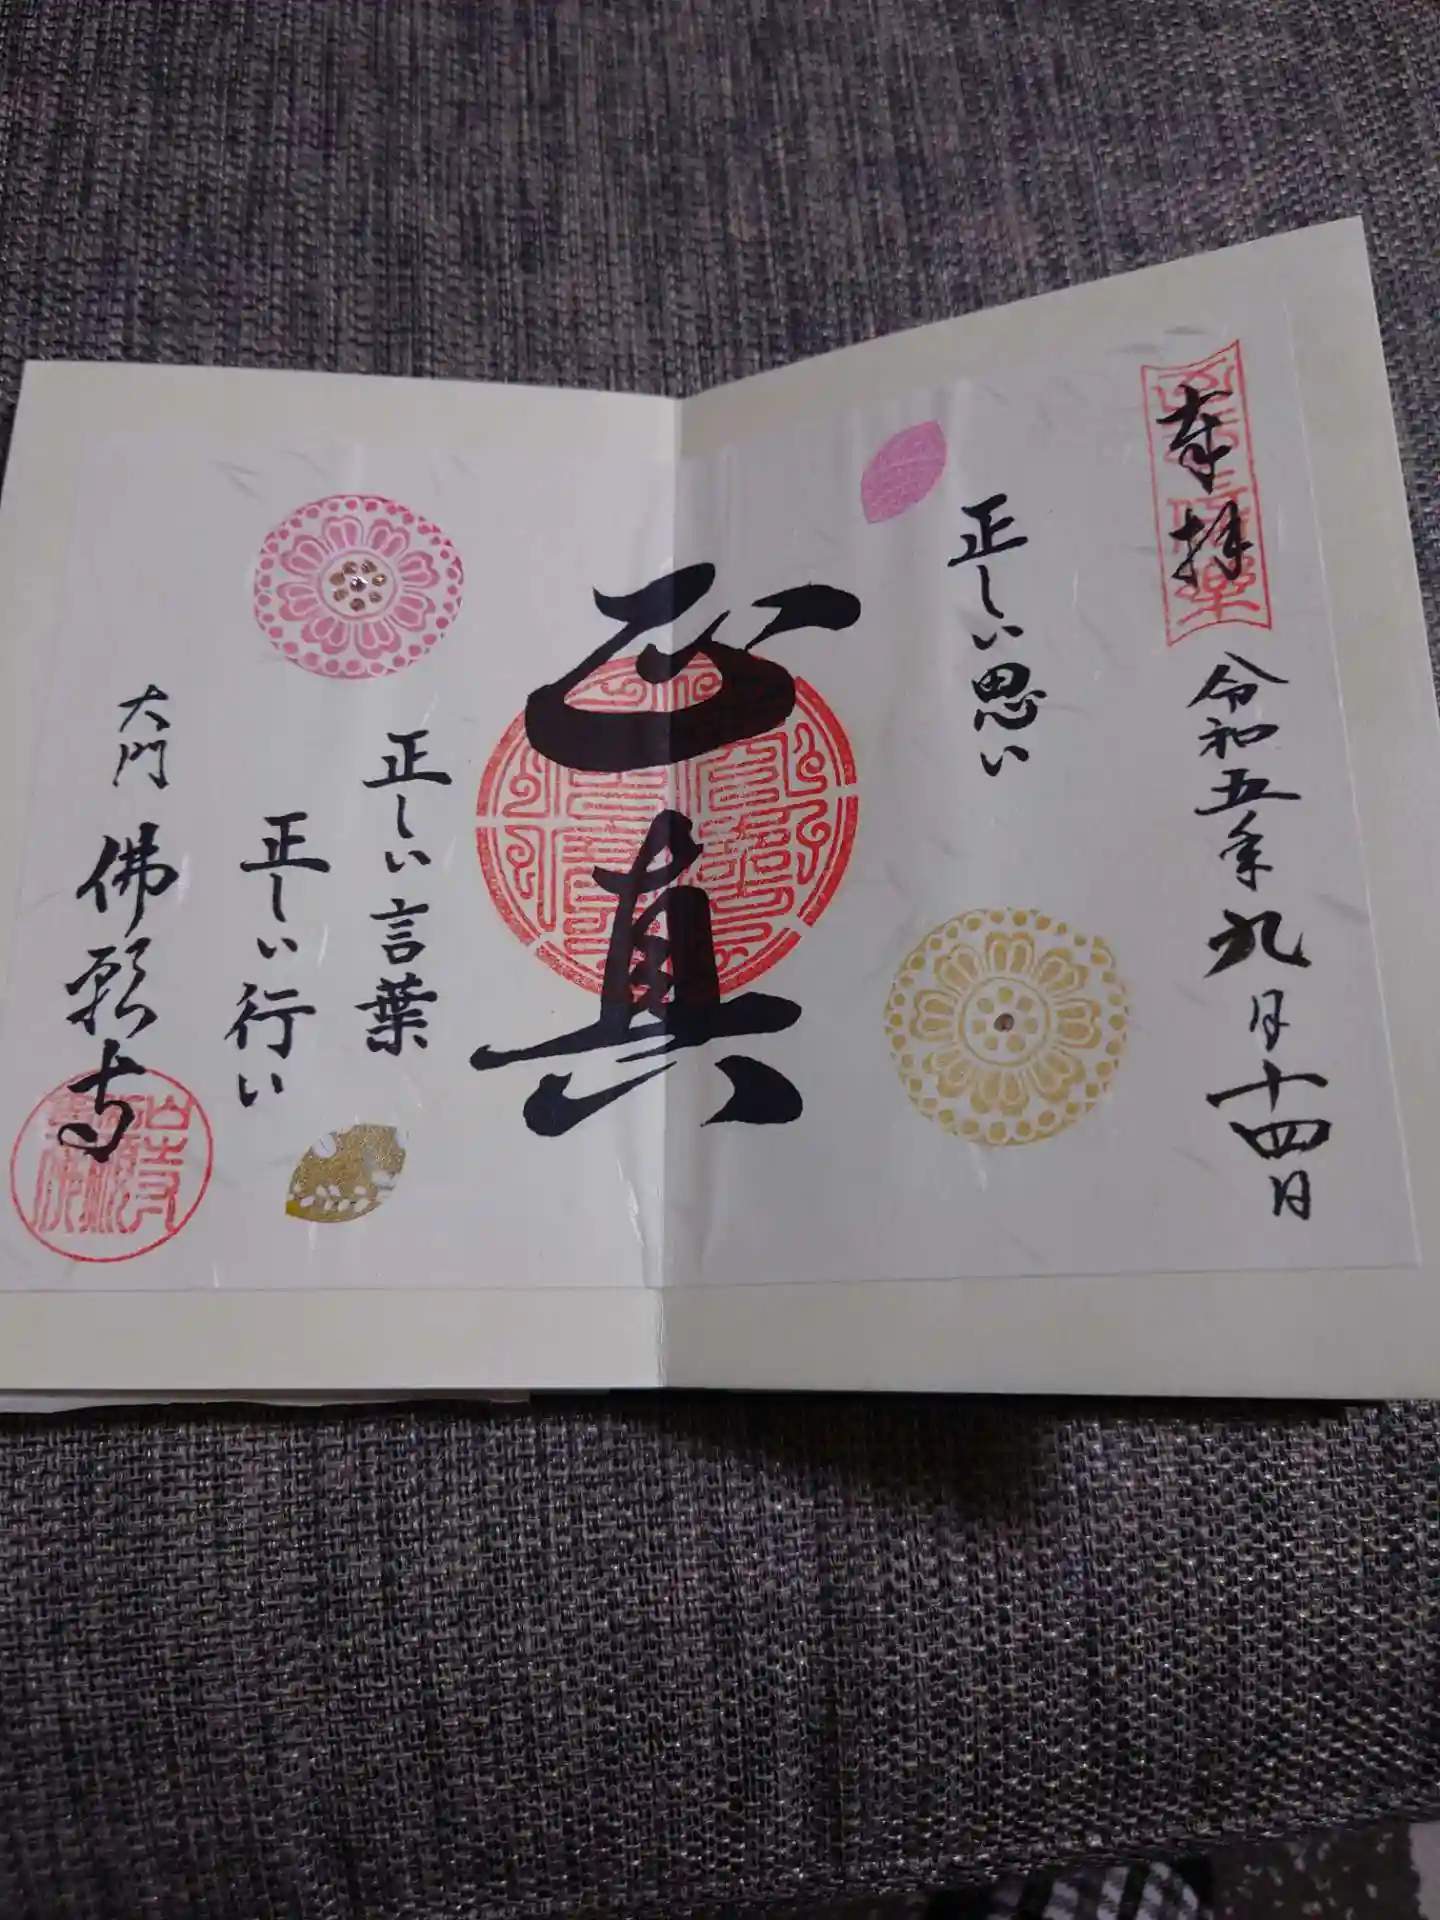 奉拝
令和五年九月十四日
正しい思い
正真
正しい言葉
正しい行い
大門
佛願寺